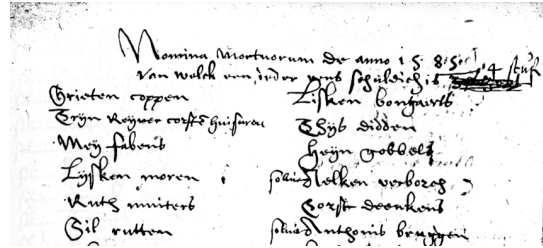 Nomina Mortuorum de anno 1585
Van welck een ider ons schuldich is 4 stuf
Grieten coppen
Tryn Reyner corsten huisuren
Mey fabens
Lysken moren
Ruth muiters
Sil rutten
Lisken bongarts
Thys didden
Heyn gobbels
solvit Nelken verborch
Corst deenkens
solvit Anthonis bruggen